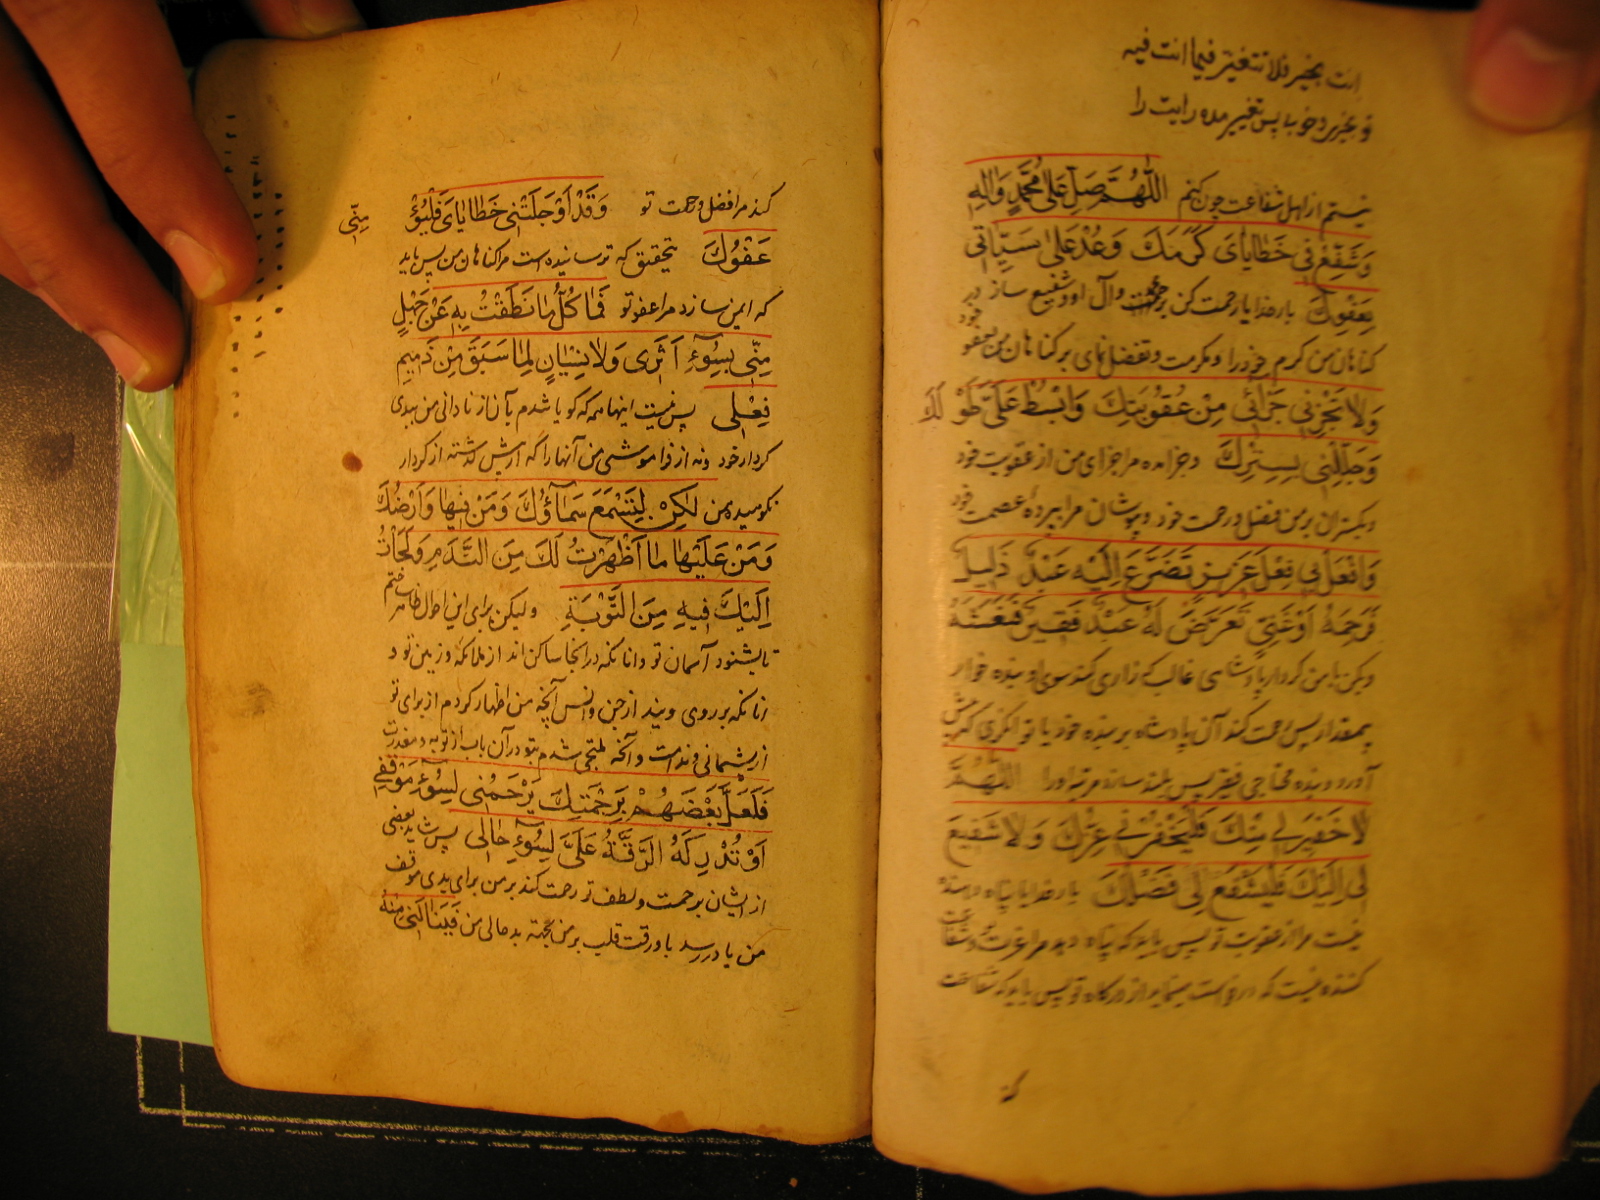 انت بخیر فلا تتغیر فیما انت فیه
تو بخیر و خوبی پس تغییر مده رایت را
نیستم از اهل شفاعت چون کنم اللّٰهُمَّ صَلِّ عَلىٰ مُحَمَّدٍ وَاٰلِهِ
وَشَفِّعْ فِي خَطَايَايَ كَرَمَكَ وَعُدْ عَلىٰ سَيِّئَاتِي
بِعَفْوِكَ بار خدایا رحمت کن بر محمد وآل او و شفیع ساز در
گناهان من کرم خود را و مکرمت و تفضل نمای بر گناهان من بعفو خود
وَلاٰ تَجْزِنِي جَزَائِي مِنْ عُقُوبَتِكَ وَابْسُطْ عَلَيَّ طَوْلَكَ
وَجَلِّلْنِي بِسِتْرِكَ و جزا مده مرا جزای من از عقوبت خود
و بگستران بر من فضل و رحمت خود و بپوشان مرا بپرده عصمت خود
وَافْعَلْ بِي فِعْلَ عَزِيزٍ تَضَرَّعَ إِلَيْهِ عَبْدٌ ذَلِيلٌ
فَرَحِمَهُ أَوْ غَنِيٍّ تَعَرَّضَ لَهُ عَبْدٌ فَقِيرٌ فَنَعَشَهُ
و بکن با من کردار پادشاهی غالب که زاری کند سوی او بنده خوار
بیمقدار پس رحمت کند آن پادشاه بر بنده خود یا توانگری که پیش
آورد و بنده محتاجی فقیر پس بلند سازد مرتبه او را اللّٰهُمَّ
لاٰ خَفِيرَ لِي مِنْكَ فَلْيَخْفُرْنِي عِزُّكَ وَلاٰ شَفِيعَ
لِي إِلَيْكَ فَلْيَشْفَعْ لِي فَضْلُكَ بار خدایا پناه دهنده
نیست مرا از عقوبت تو پس باید که پناه دهد مرا عزت تو و شفاعت
کننده نیست که درخواست نماید از درگاه تو پس باید که شفاعت
کند مرا فضل و رحمت تو وَقَدْ أَوْجَلَتْنِي خَطَايَايَ فَلْيُؤْمِنِّي
عَفْوُكَ بتحقیق که ترسانیده است مرا گناهان من پس باید
که ایمن سازد مرا عفو تو فَمَا كُلُّ مَا نَطَقْتُ بِهِ عَنْ جَهْلٍ
مِنِّي بِسُوءِ أَثَرِي وَلاٰ نِسْيَانٍ لِمَا سَبَقَ مِنْ ذَمِيمِ
فِعْلِي پس نیست اینها همه که گویا شدم بآن از نادانی من ببدی
کردار خود و نه از فراموشی من آنها را که از پیش گذشته از کردار
نکوهیده من لٰكِنْ لِتَسْمَعَ سَمَاؤُكَ وَمَنْ فِيهَا وَأَرْضُكَ
وَمَنْ عَلَيْهَا مَا أَظْهَرْتُ لَكَ مِنَ النَّدَمِ وَلَجَأْتُ
إِلَيْكَ فِيهِ مِنَ التَّوْبَةِ ولیکن برای این اظهار ساختم
تا بشنود آسمان تو و آنانکه در آنجا ساکن اند از ملائکه و زمین تو و
آنانکه بر روی ویند از جن و انس آنچه من اظهار کردم از برای تو
از پشیمانی و ندامت و آنچه ملتجی شدم بتو در آن باب از توبه و معذرت
فَلَعَلَّ بَعْضَهُمْ بِرَحْمَتِكَ يَرْحَمُنِي لِسُوءِ مَوْقِفِي
أَوْ تُدْرِكُهُ الرِّقَّةُ عَلَيَّ لِسُوءِ حَالِي پس شاید بعضی
از ایشان برحمت و لطف تو رحمت کند بر من برای بدی موقف
من یا در رسد باو رقت قلب بر من بجهة بد حالی من فَيَنَالَنِي مِنْهُ